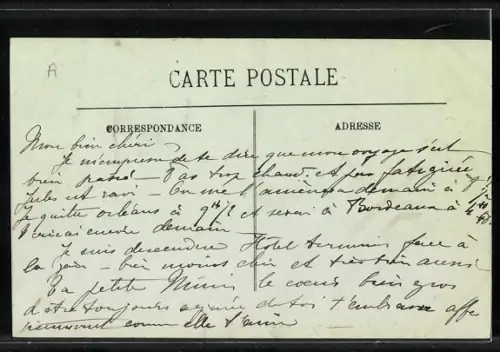 A
CARTE POSTALE
CORRESPONDANCE
ADRESSE
Mon bien chéri –
Je m'empresse de te dire que mon voyage s'est
bien passé – Pas trop chaud, et pas fatiguée
Jules est ravi – On me l'amènera demain à
Je quitte Orléans à 9h 1/2 et serai à Bordeaux à
t'écrirai encore demain –
Je suis descendue Hôtel terminus face à
la gare – bien moins cher et très bien aussi
Ta petite le coeur bien gros
d'être toujours de toi t'embrasse affec
comme elle t'aime